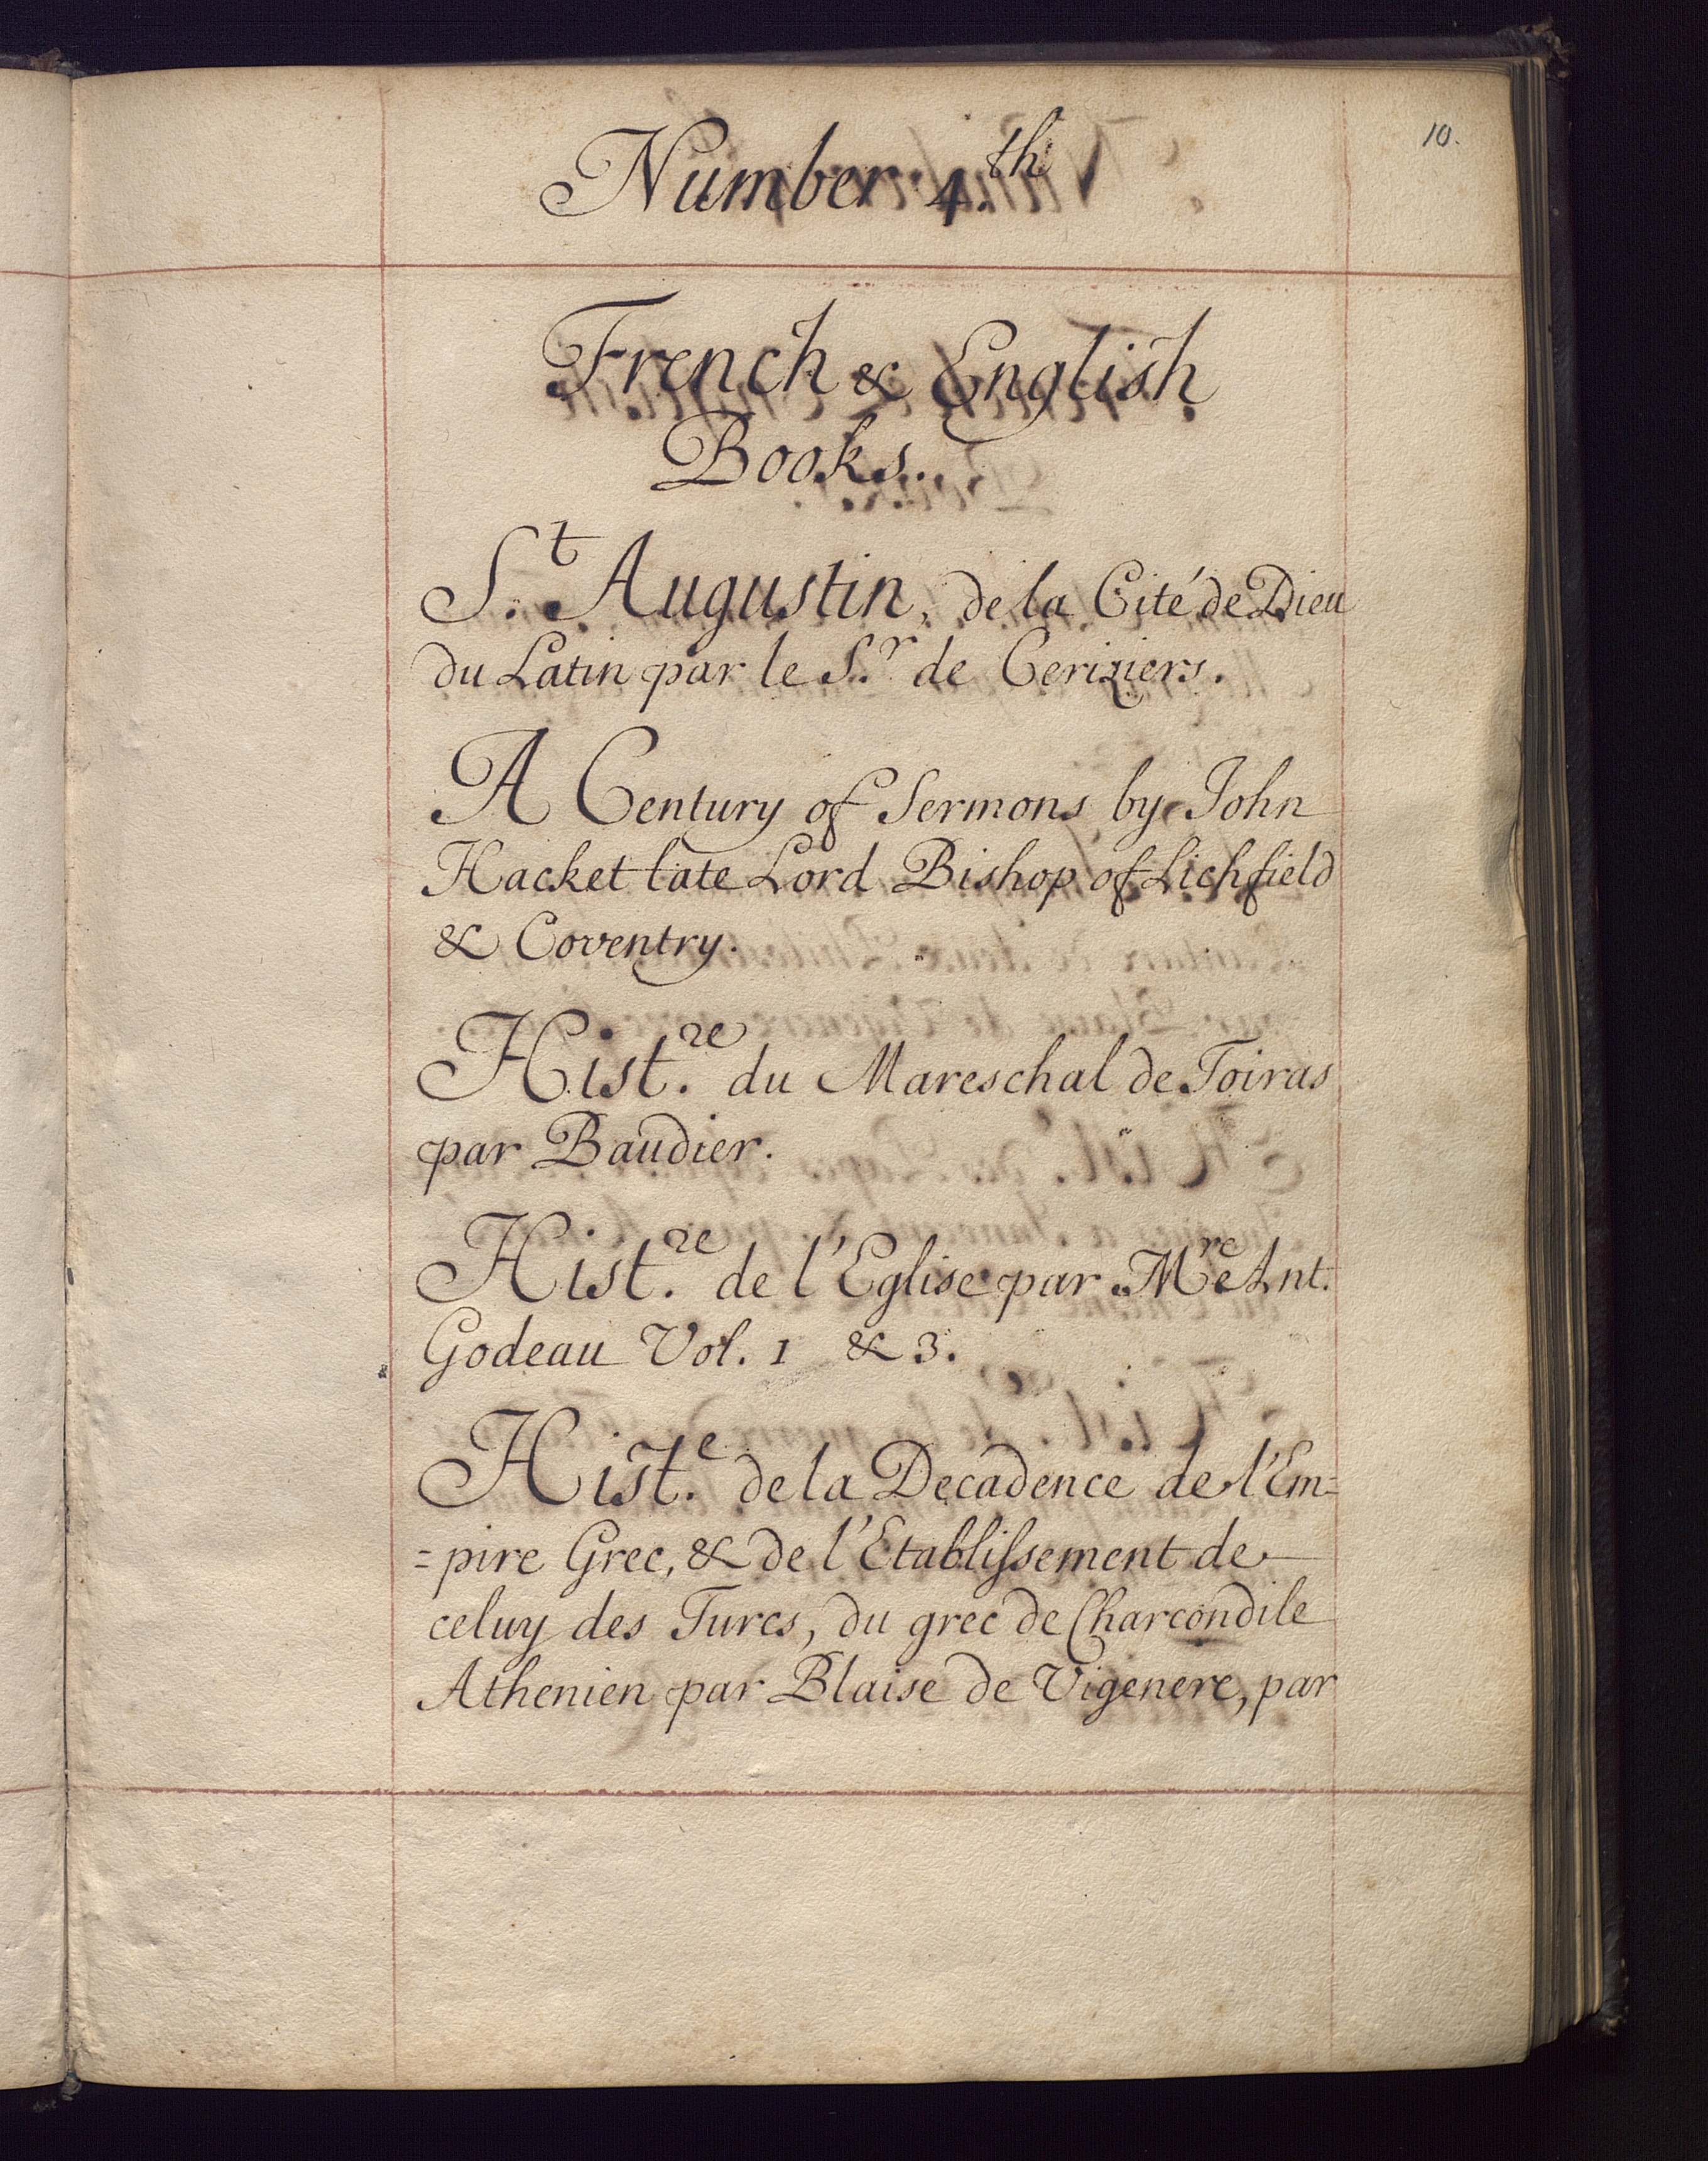 10.
Number 4.th
French & English
Books.
St. Augustin, de la Cité de Dieu
du Latin par le Sr. de Ceriziers.
A Century of Sermons by John
Hacket late Lord Bishop of Lichfield
& Coventry.
Hist.re du Mareschal de Toiras
par Baudier.
Hist.re de l'Eglise par Mre Ant.
Godeau Vol. 1 & 3.
Hist.e de la Decadence de l'Em=
=pire Grec, & de l'Etablißement de
celuy des Turcs, du grec de Charcondile
Athenien par Blaise de Vigenere, par